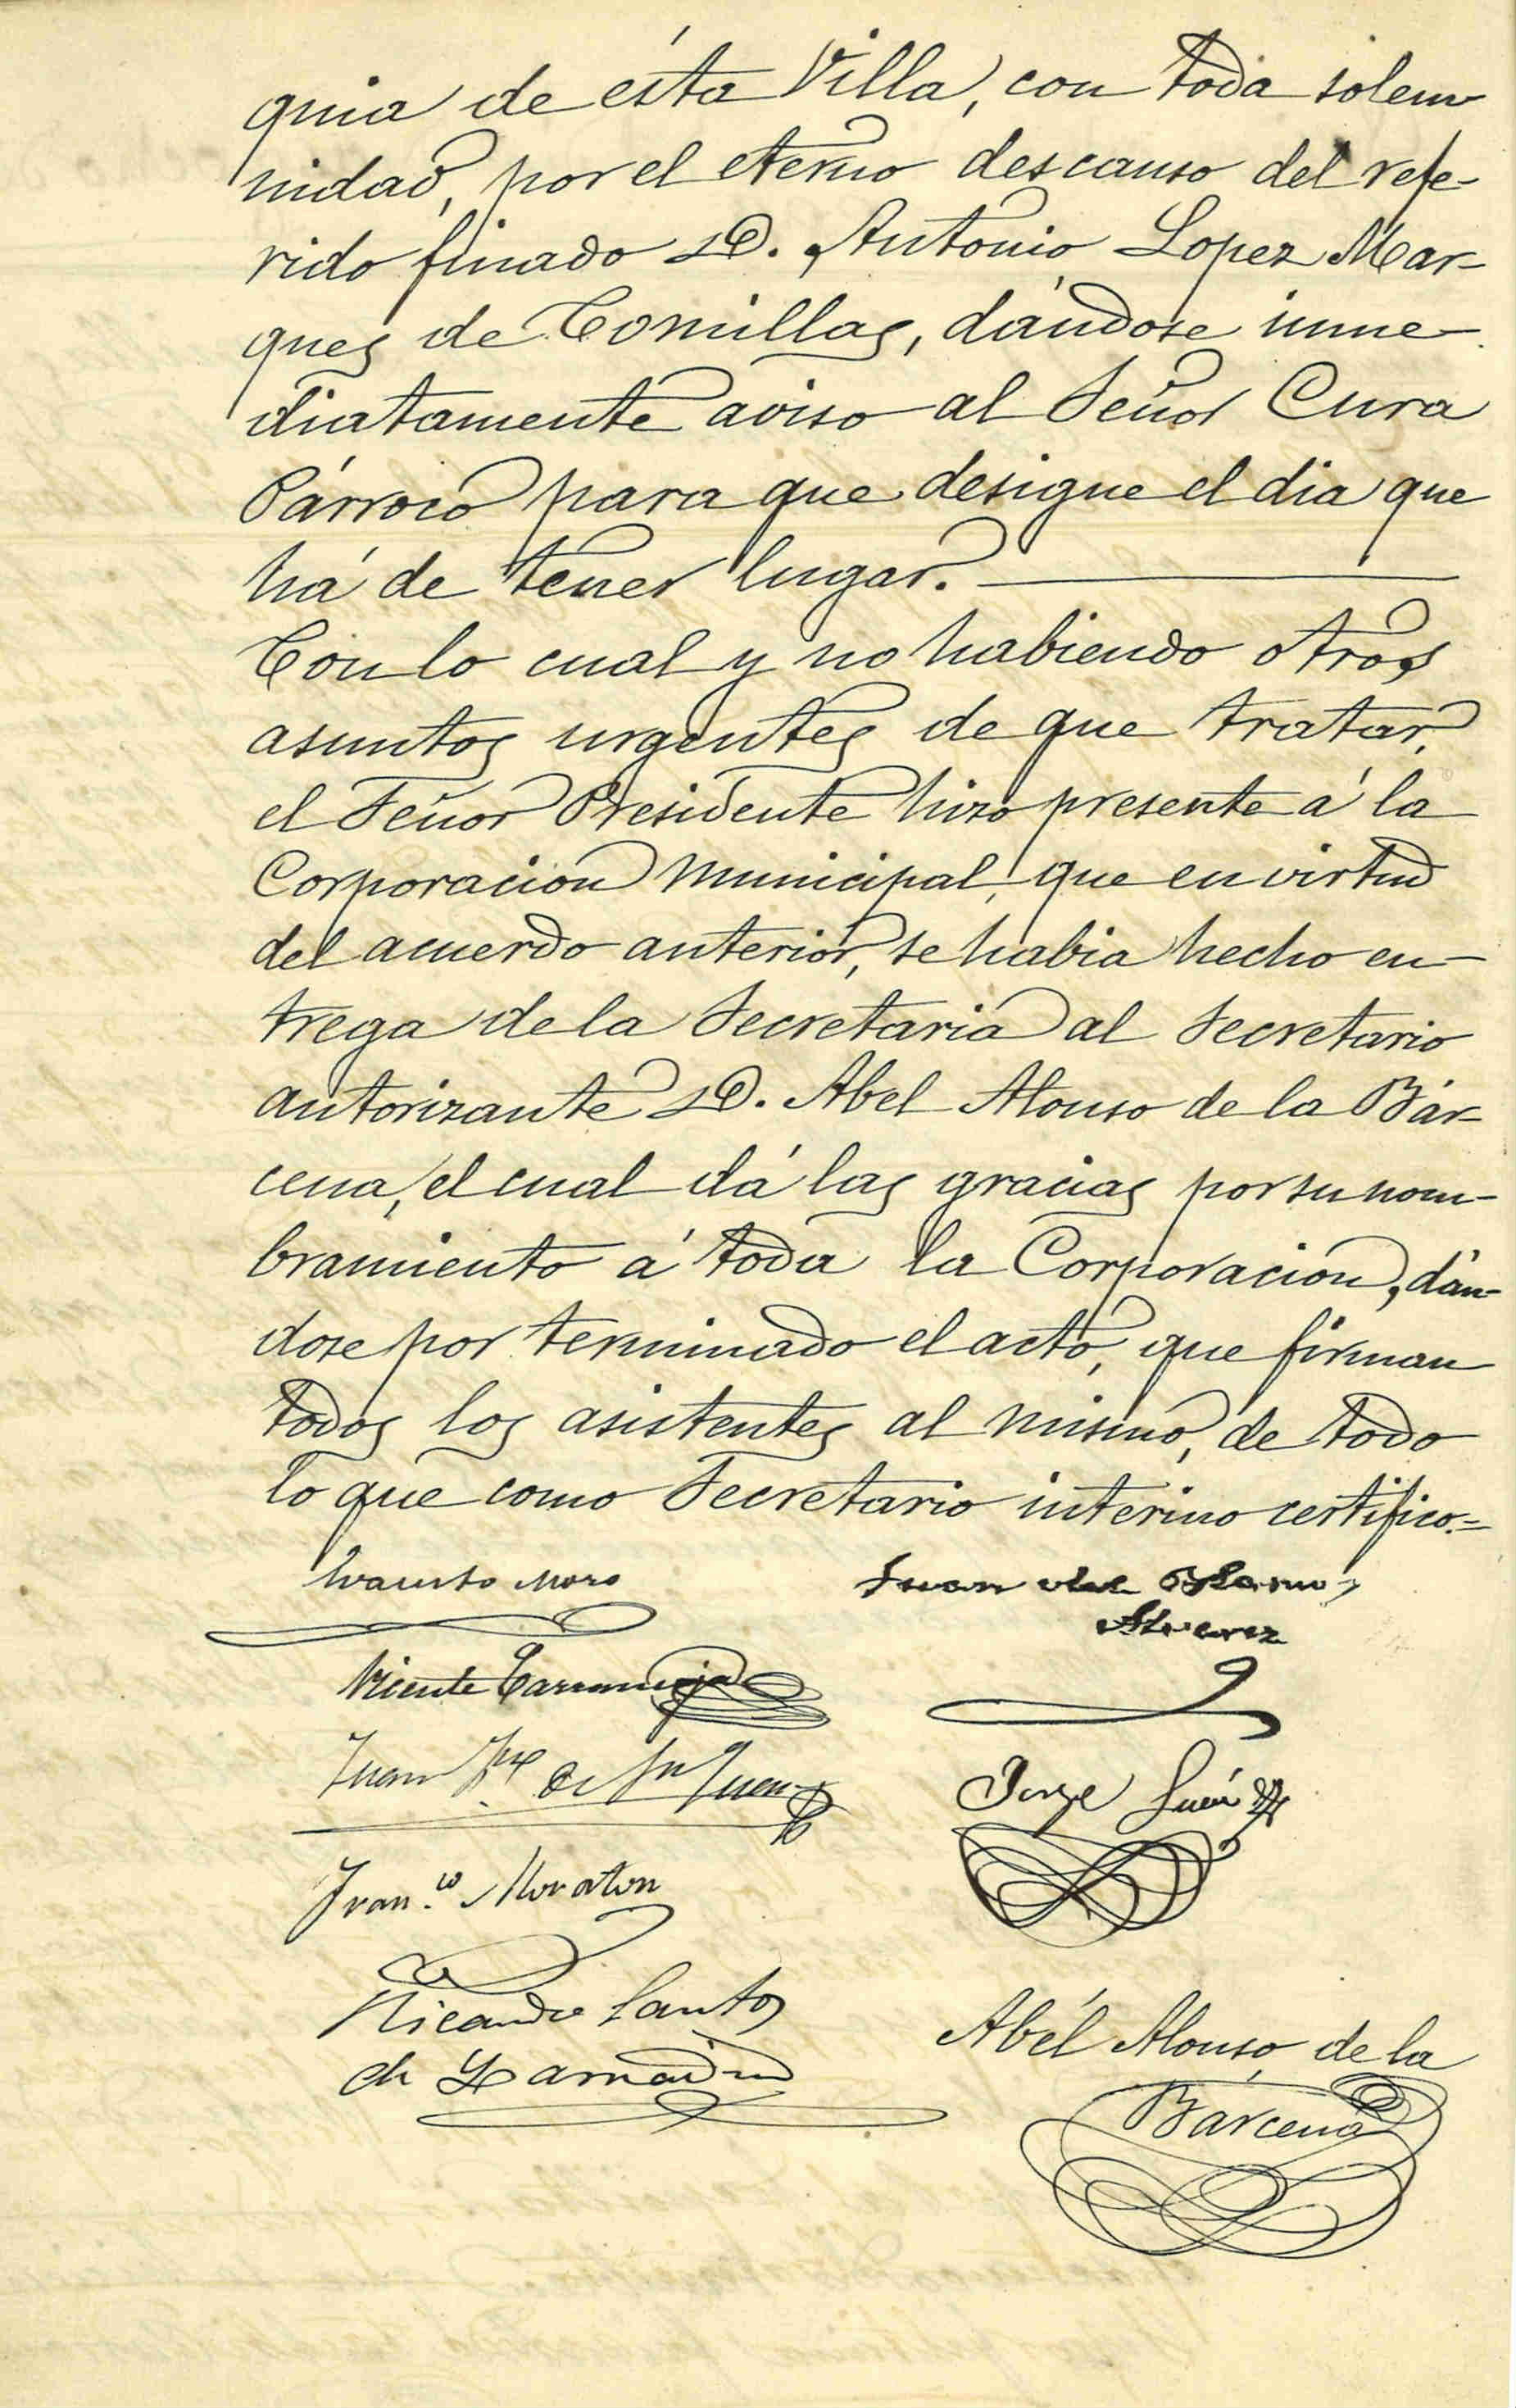 quia de ésta Villa, con toda solem
nidad, por el eterno descanso del refe-
rido finado D. Antonio Lopez Mar-
ques de Comillas, dándose inme-
diatamente aviso al Señor Cura
Párroco para que designe el dia que
há de tener lugar.
Con lo cual y no habiendo otros
asuntos urgentes de que tratar,
el Señor Presidente hizo presente á la
Corporacion Municipal, que en virtud
del acuerdo anterior, se habia hecho en-
trega de la Secretaria al Secretario
autorizante D. Abel Alonso de la Bár-
cena, el cual dá las gracias por su nom-
bramiento á toda la Corporacion, dán-
dose por terminado el acto, que firman
todos los asistentes al mismo, de todo
lo que como Secretario interino certifico.=
Evaristo Moro
Juan del
Alvarez
Vicente
Juan
Jorge
Fran.co Moraton
Nicandro Santos
de
Abél Alonso de la
Bárcena